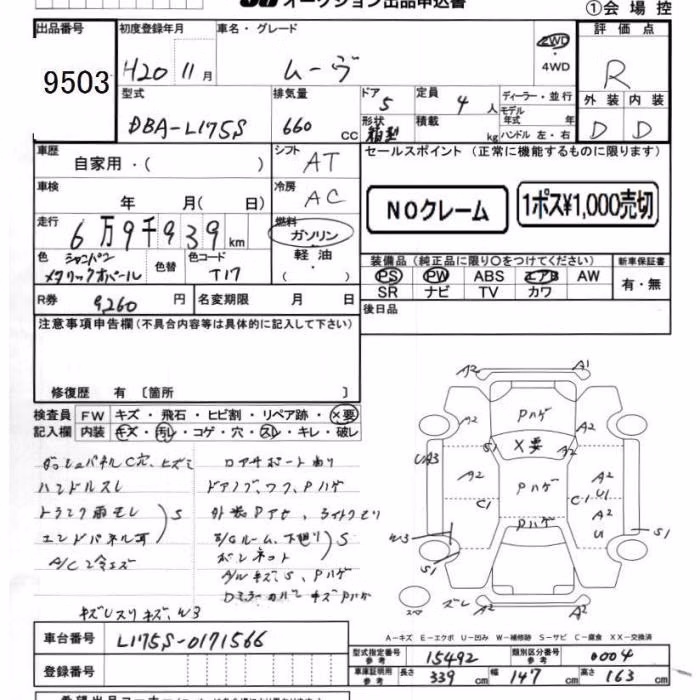 オークション出品申込書
①会場控
出品番号
9503
初度登録年月
H20 11月
車名・グレード
ムーヴ
2WD
・
4WD
評価点
R
外装 内装
D D
型式
DBA-L175S
排気量
660 cc
ドア
5
形状
箱型
定員
4人
積載
kg
ディーラー・並行
モデル
年式 年
ハンドル 左・右
車歴
自家用・( )
シフト
AT
車検
年 月( 日)
冷房
AC
走行
6万9千939km
燃料
ガソリン
軽油
・
( )
色
シャンパン
メタリックオパール
色替
色コード
T17
R券
9,260円
名変期限 月 日
セールスポイント(正常に機能するものに限ります)
NOクレーム
1ポス¥1,000売切
装備品(純正品に限り○をつけてください)
PS PW ABS エアB AW
SR ナビ TV カワ
新車保証書
有・無
後日品
注意事項申告欄(不具合内容等は具体的に記入して下さい)
修復歴 有〔箇所 〕
検査員
記入欄
FW キズ・飛石・ヒビ割・リペア跡・×要
内装 キズ・汚レ・コゲ・穴・スレ・キレ・破レ
ダッシュパネルC穴、ヒズミ
ハンドルスレ
トランク雨モレ
エンドパネル耳
S
A/C冷エズ
ロアサポート曲り
ドアノブ、ワク、Pハゲ
外装Pアセ、ライトクモリ
E/Gルーム、下廻り
ボンネット
S
A/Wキズ、S、Pハゲ
DミラーカバーキズPハゲ
キズU スリキズ、W3
A2
A1
Pハゲ
A2
A2
S1
×要
A2
UA3
A2
A2
U1
C1
Pハゲ
C1
A2
U
Pハゲ
W3
S1
S1
スペア
ズレ
A2
A2
A-キズ E-エクボ U-凹み W-補修跡 S-サビ C-腐食 XX-交換済
車台番号
L175S-0171566
登録番号
型式指定番号
参考
15492
類別区分番号
参考
0004
車庫証明用
参考
長さ 339 cm
幅 147 cm
高さ 163 cm